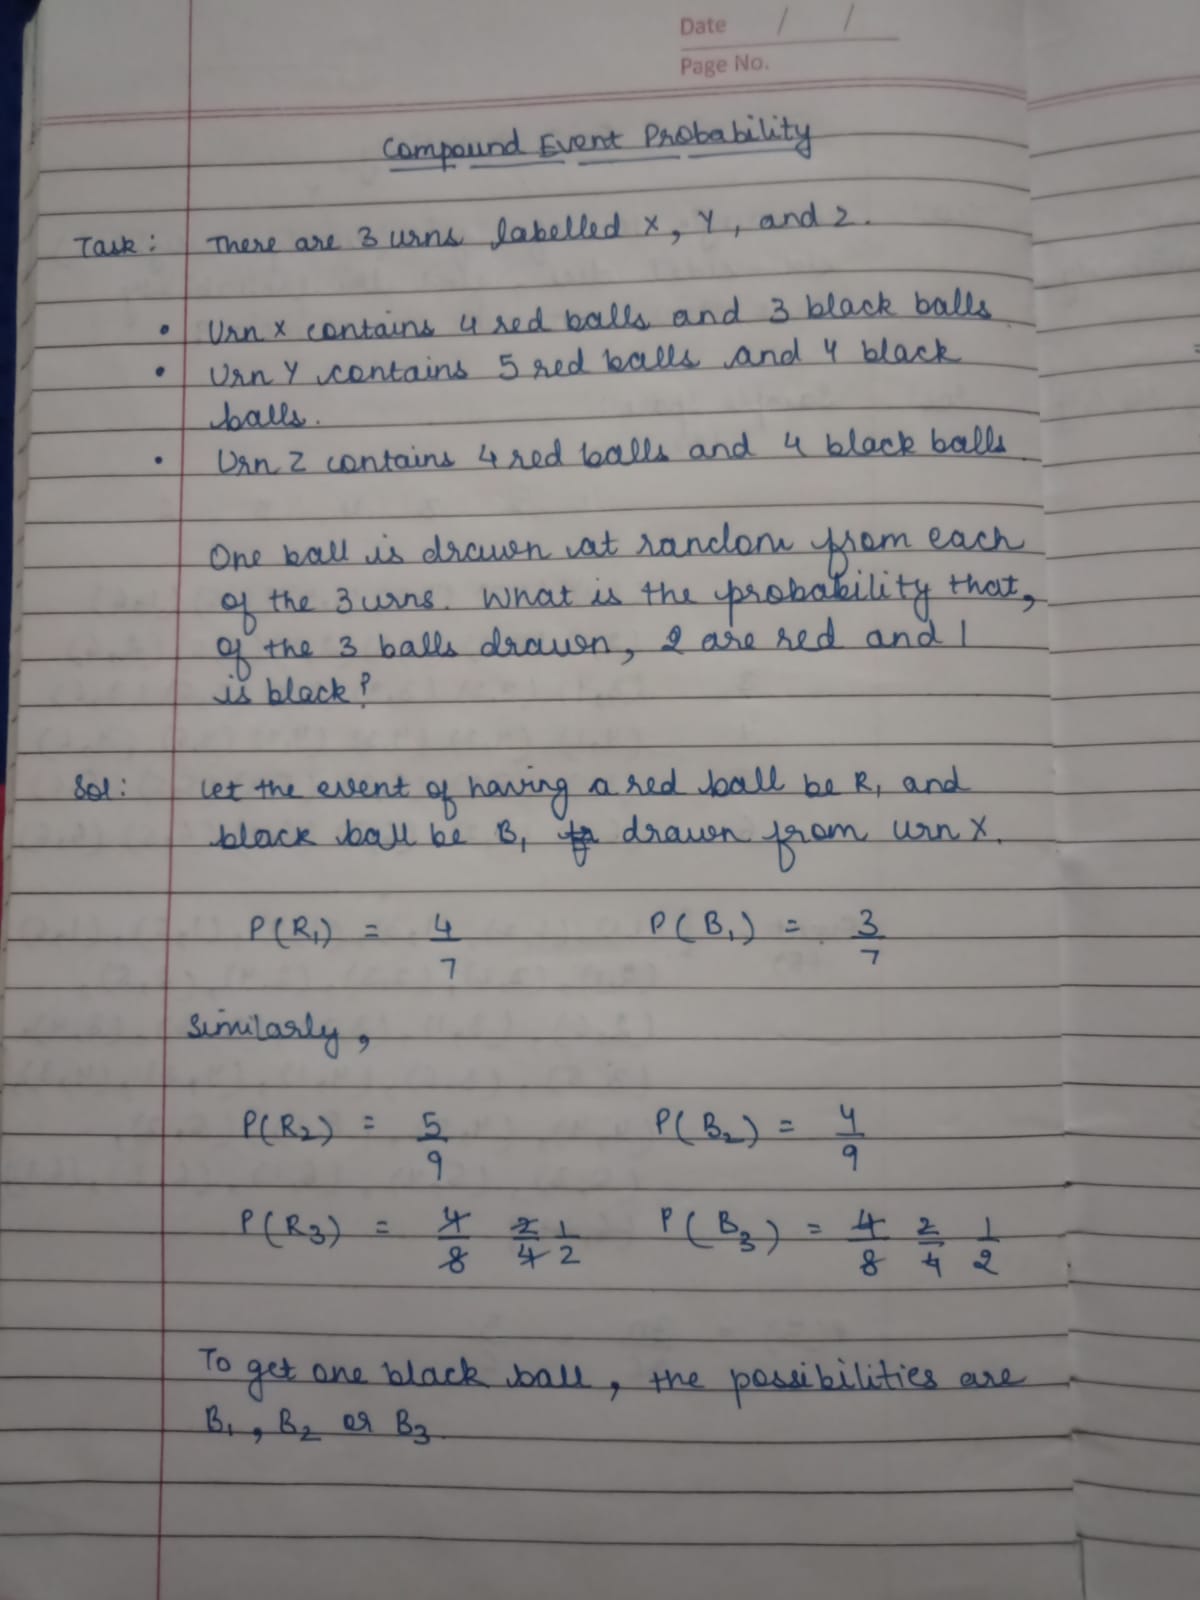 Date / /
Page No.
Compound Event Probability
Task: There are 3 urns labelled X, Y, and Z.
• Urn X contains 4 red balls and 3 black balls.
• Urn Y contains 5 red balls and 4 black
balls.
• Urn Z contains 4 red balls and 4 black balls.
One ball is drawn at random from each
of the 3 urns. What is the probability that,
of the 3 balls drawn, 2 are red and 1
is black?
Sol: Let the event of having a red ball be R₁ and
black ball be B₁ drawn from urn X.
P(R₁) = 4/7 P(B₁) = 3/7
Similarly,
P(R₂) = 5/9 P(B₂) = 4/9
P(R₃) = 4/8 2/4 1/2 P(B₃) = 4/8 2/4 1/2
To get one black ball, the possibilities are
B₁, B₂ or B₃.